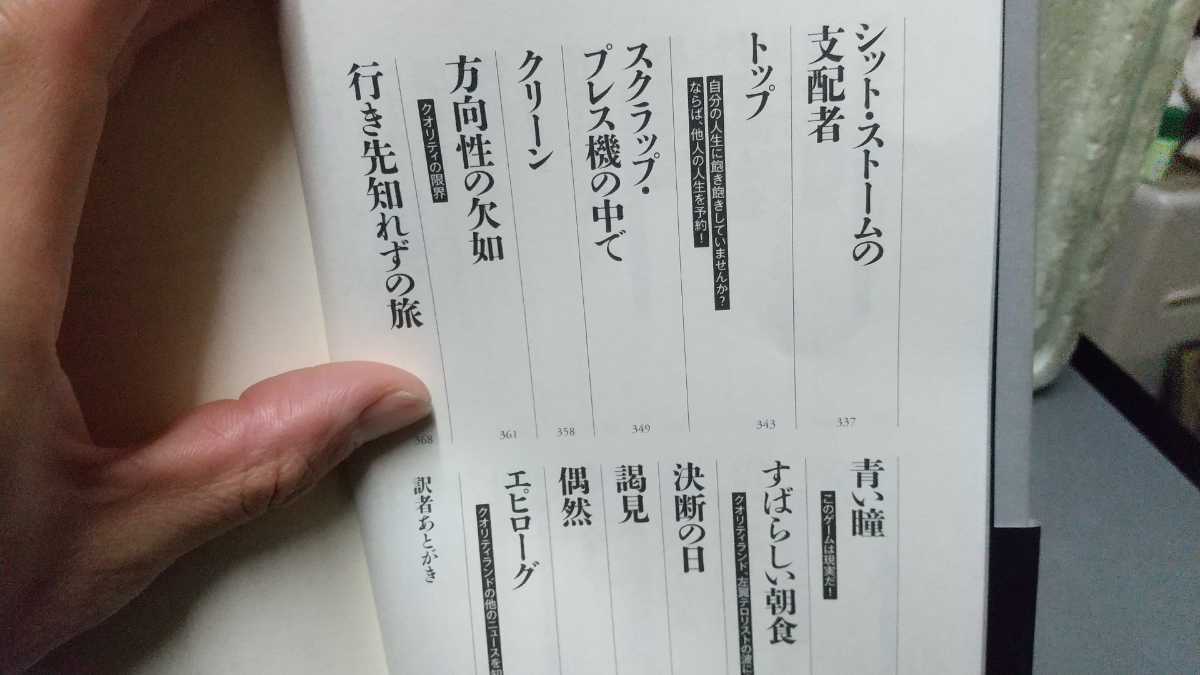 シット・ストームの
支配者
337
トップ
343
自分の人生に飽き飽きしていませんか?
ならば、他人の人生を予約!
スクラップ・
プレス機の中で
349
クリーン
358
方向性の欠如
361
クオリティの限界
行き先知れずの旅
368
青い瞳
このゲームは現実だ!
すばらしい朝食
クオリティランド、左翼テロリストの波に
決断の日
謁見
偶然
エピローグ
クオリティランドの他のニュースを知
訳者あとがき